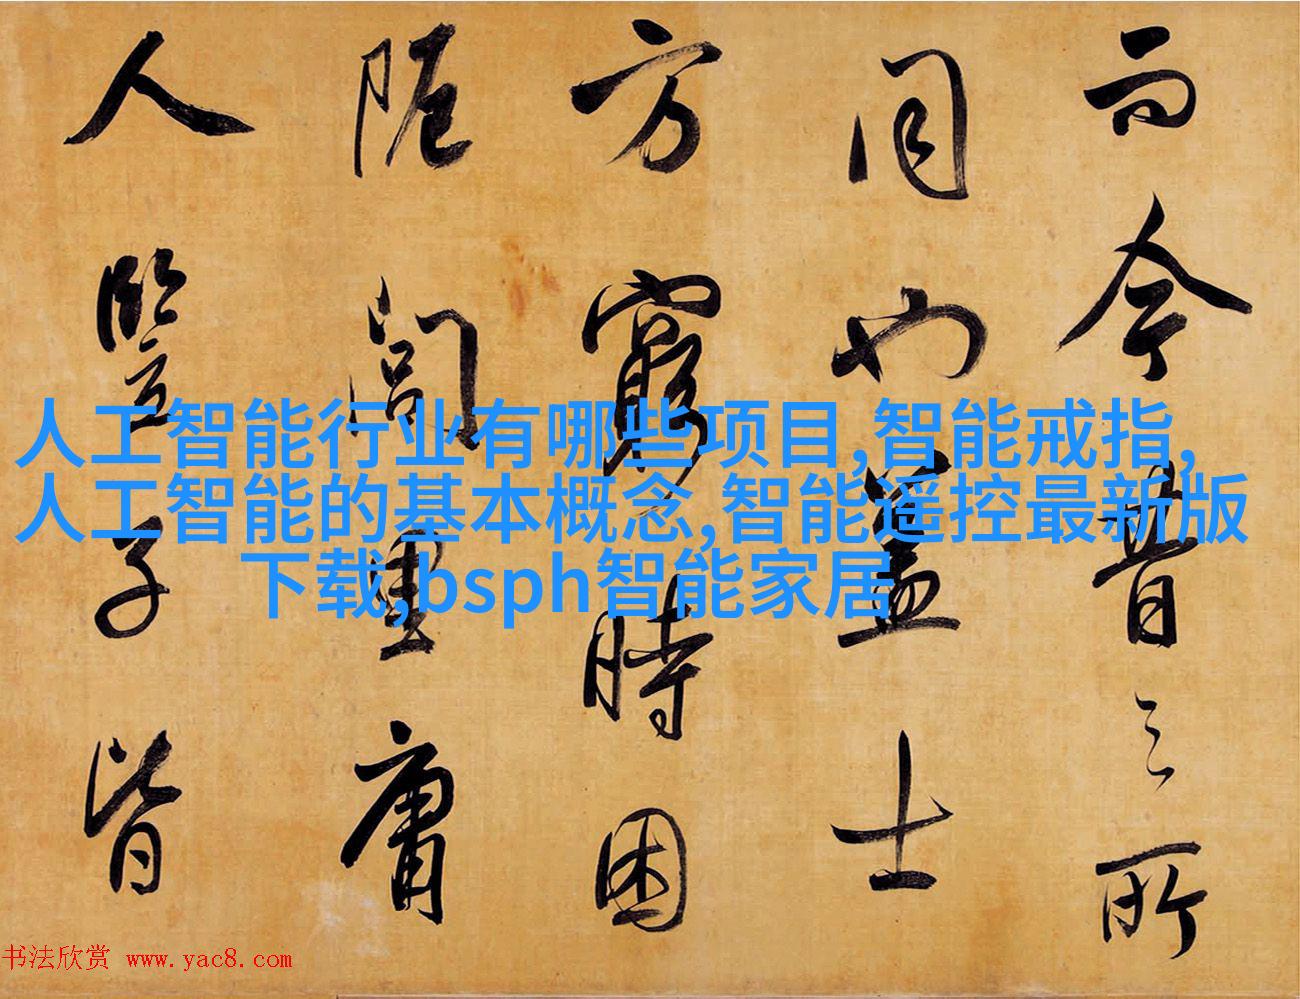 而今昔之所
同也盖士
方窮時困
阨閭里庸
人豎子皆
人工智能行业有哪些项目,智能戒指,
人工智能的基本概念,智能遥控最新版
下载,bsph智能家居
书法欣赏 www.yac8.com